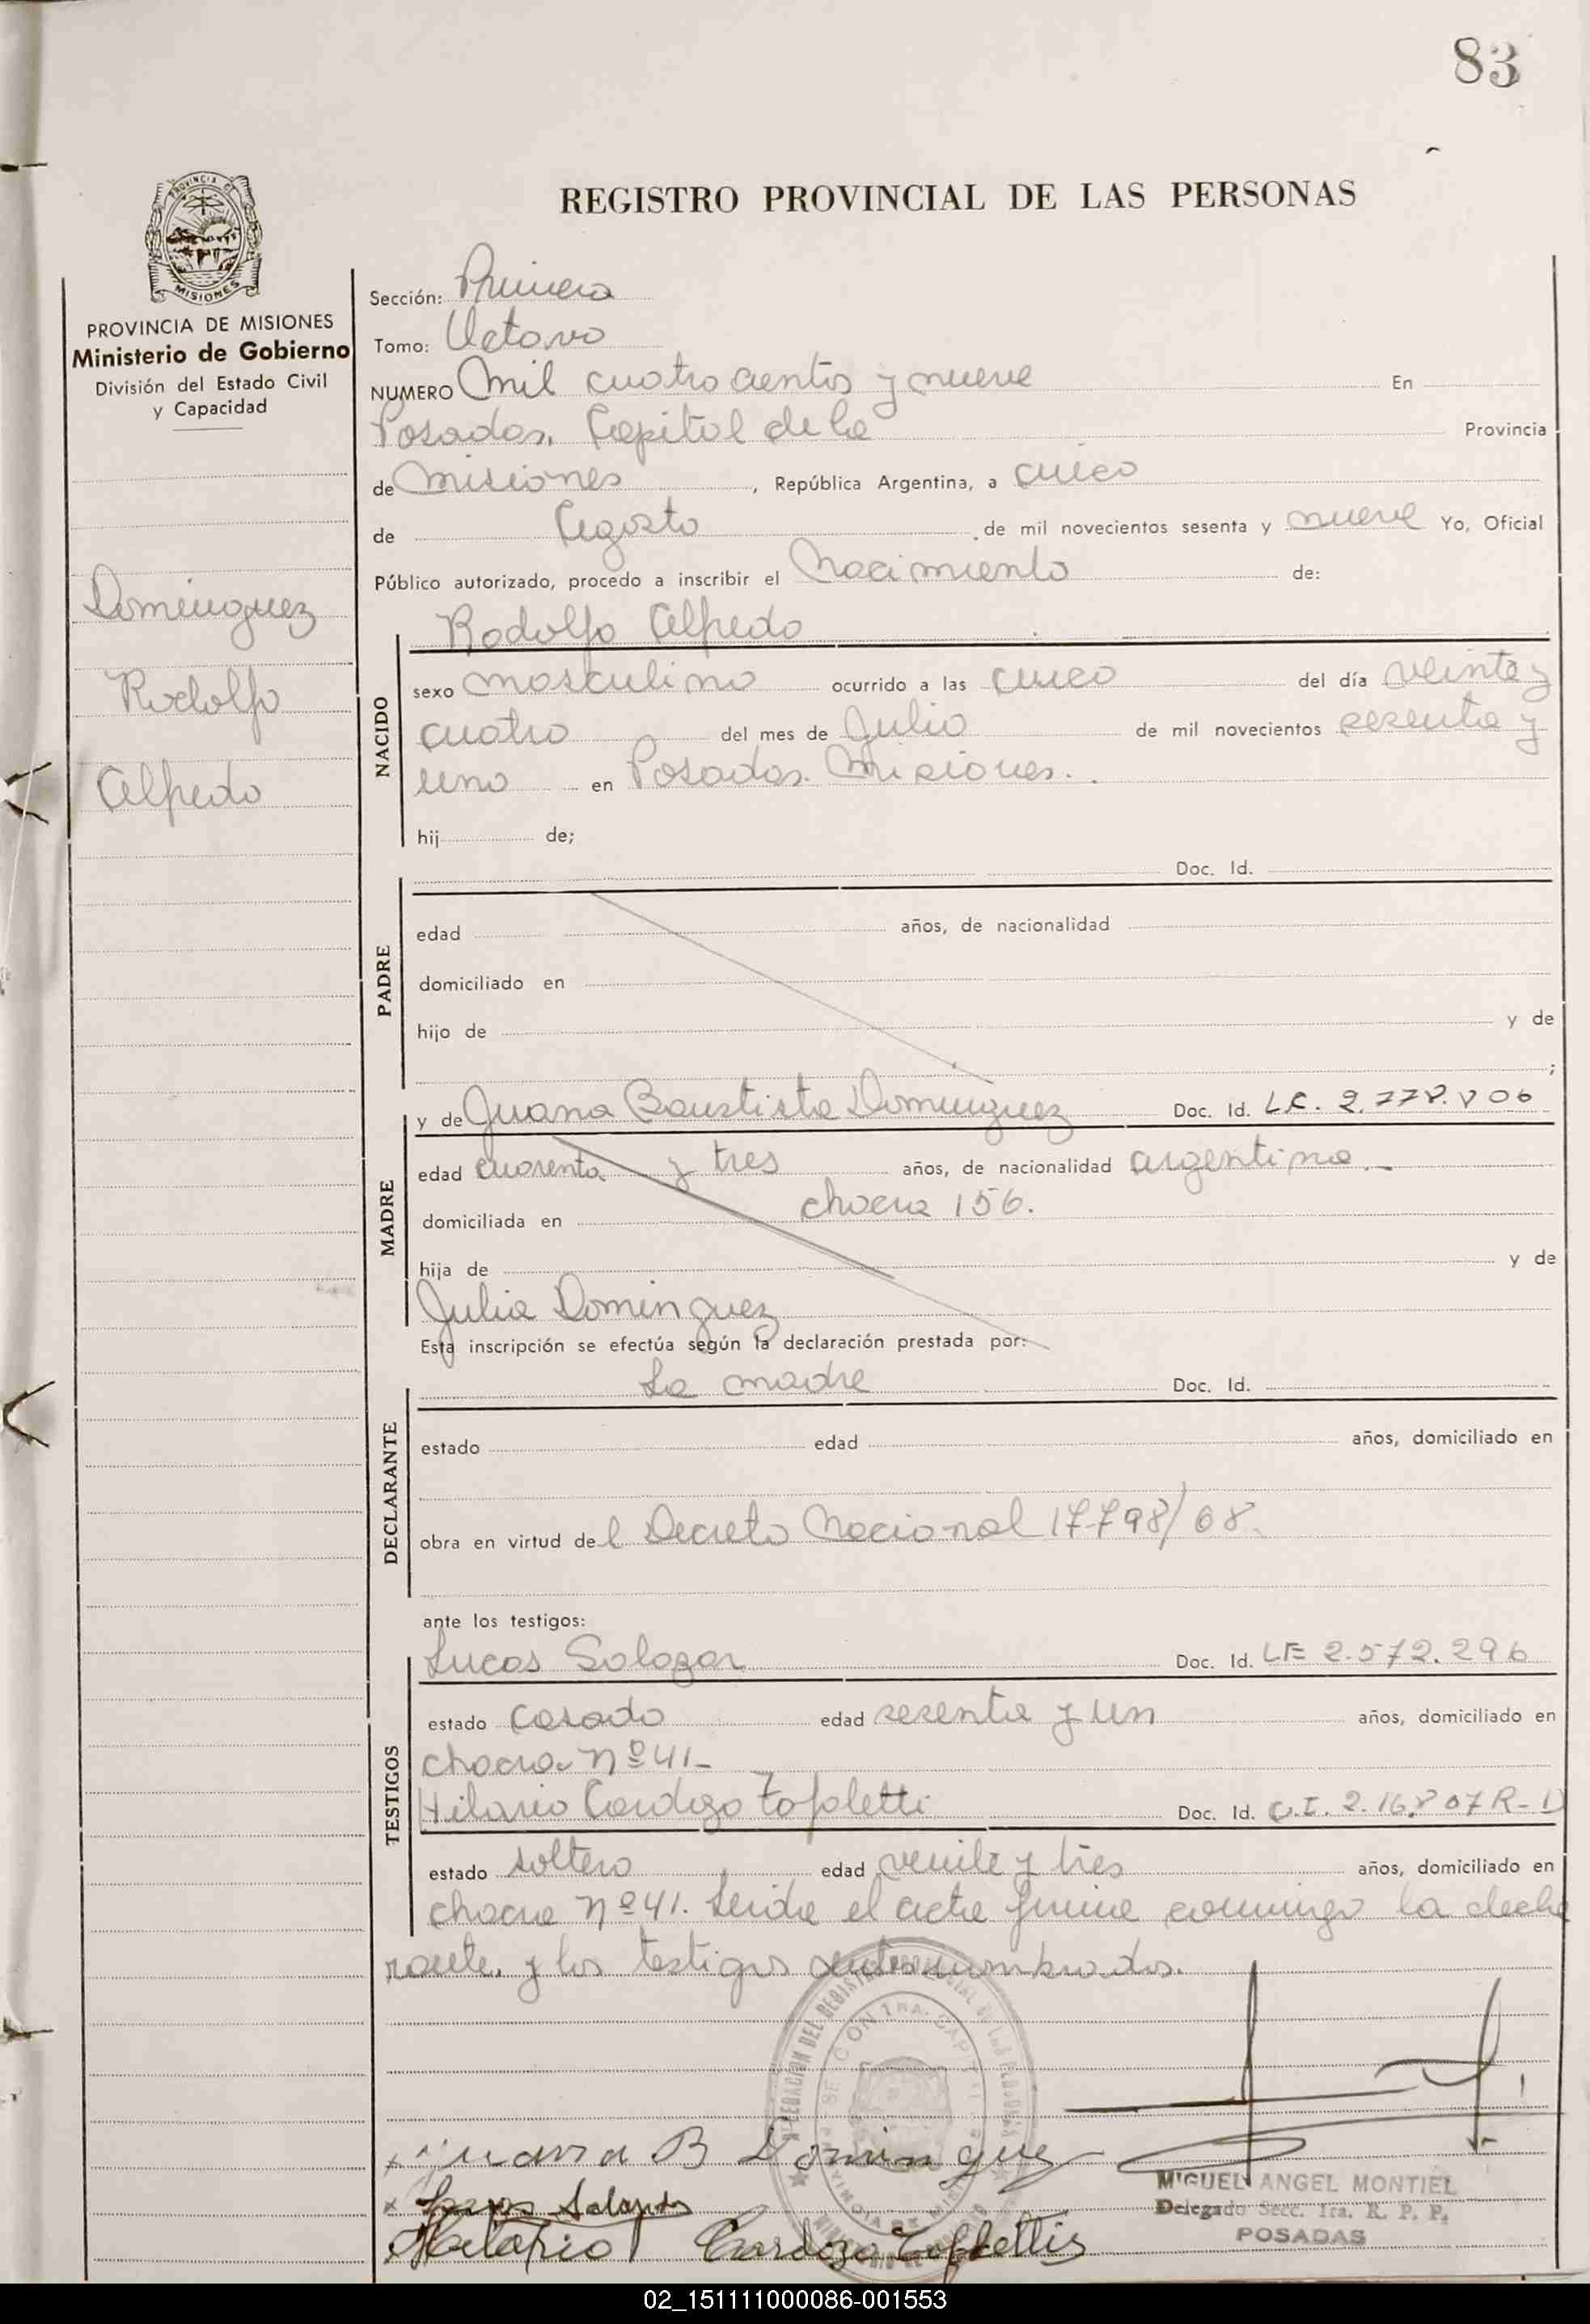 83
REGISTRO PROVINCIAL DE LAS PERSONAS
PROVINCIA DE MISIONES
Ministerio de Gobierno
División del Estado Civil
y Capacidad
Dominguez
Rodolfo
Alfredo
Sección: Primera
Tomo: Octavo
NUMERO Mil cuatrocientos y nueve En
Posadas, Capital de la Provincia
de Misiones, República Argentina, a cinco
de Agosto de mil novecientos sesenta y nueve Yo, Oficial
Público autorizado, procedo a inscribir el Nacimiento de:
NACIDO
Rodolfo Alfredo
sexo masculino ocurrido a las cinco del día veinte y
cuatro del mes de Julio de mil novecientos sesenta y
uno en Posadas. Misiones.
hij de;
PADRE
Doc. Id.
edad años, de nacionalidad
domiciliado en
hijo de y de
;
MADRE
y de Juana Bautista Dominguez Doc. Id.
edad cuarenta y tres años, de nacionalidad argentina
domiciliada en chacra 156.
hija de y de
Julia Dominguez
Esta inscripción se efectúa según la declaración prestada por:
DECLARANTE
La madre Doc. Id.
estado edad años, domiciliado en
obra en virtud del Decreto Nacional 17798/68.
ante los testigos:
TESTIGOS
Lucas Salazar Doc. Id. LE 2.572.296
estado casado edad sesenta y un años, domiciliado en
chacra nº 41-
Hilario Cardozo Doc. Id. C.I.
estado soltero edad veinte y tres años, domiciliado en
chacra nº 41. Leida el acta firma conmigo la decla
rante, y los testigos antes nombrados.
Juana B Dominguez
Hilario Cardozo
MIGUEL ANGEL MONTIEL
Delegado Secc. 1ra. R. P. P.
POSADAS
02_151111000086-001553